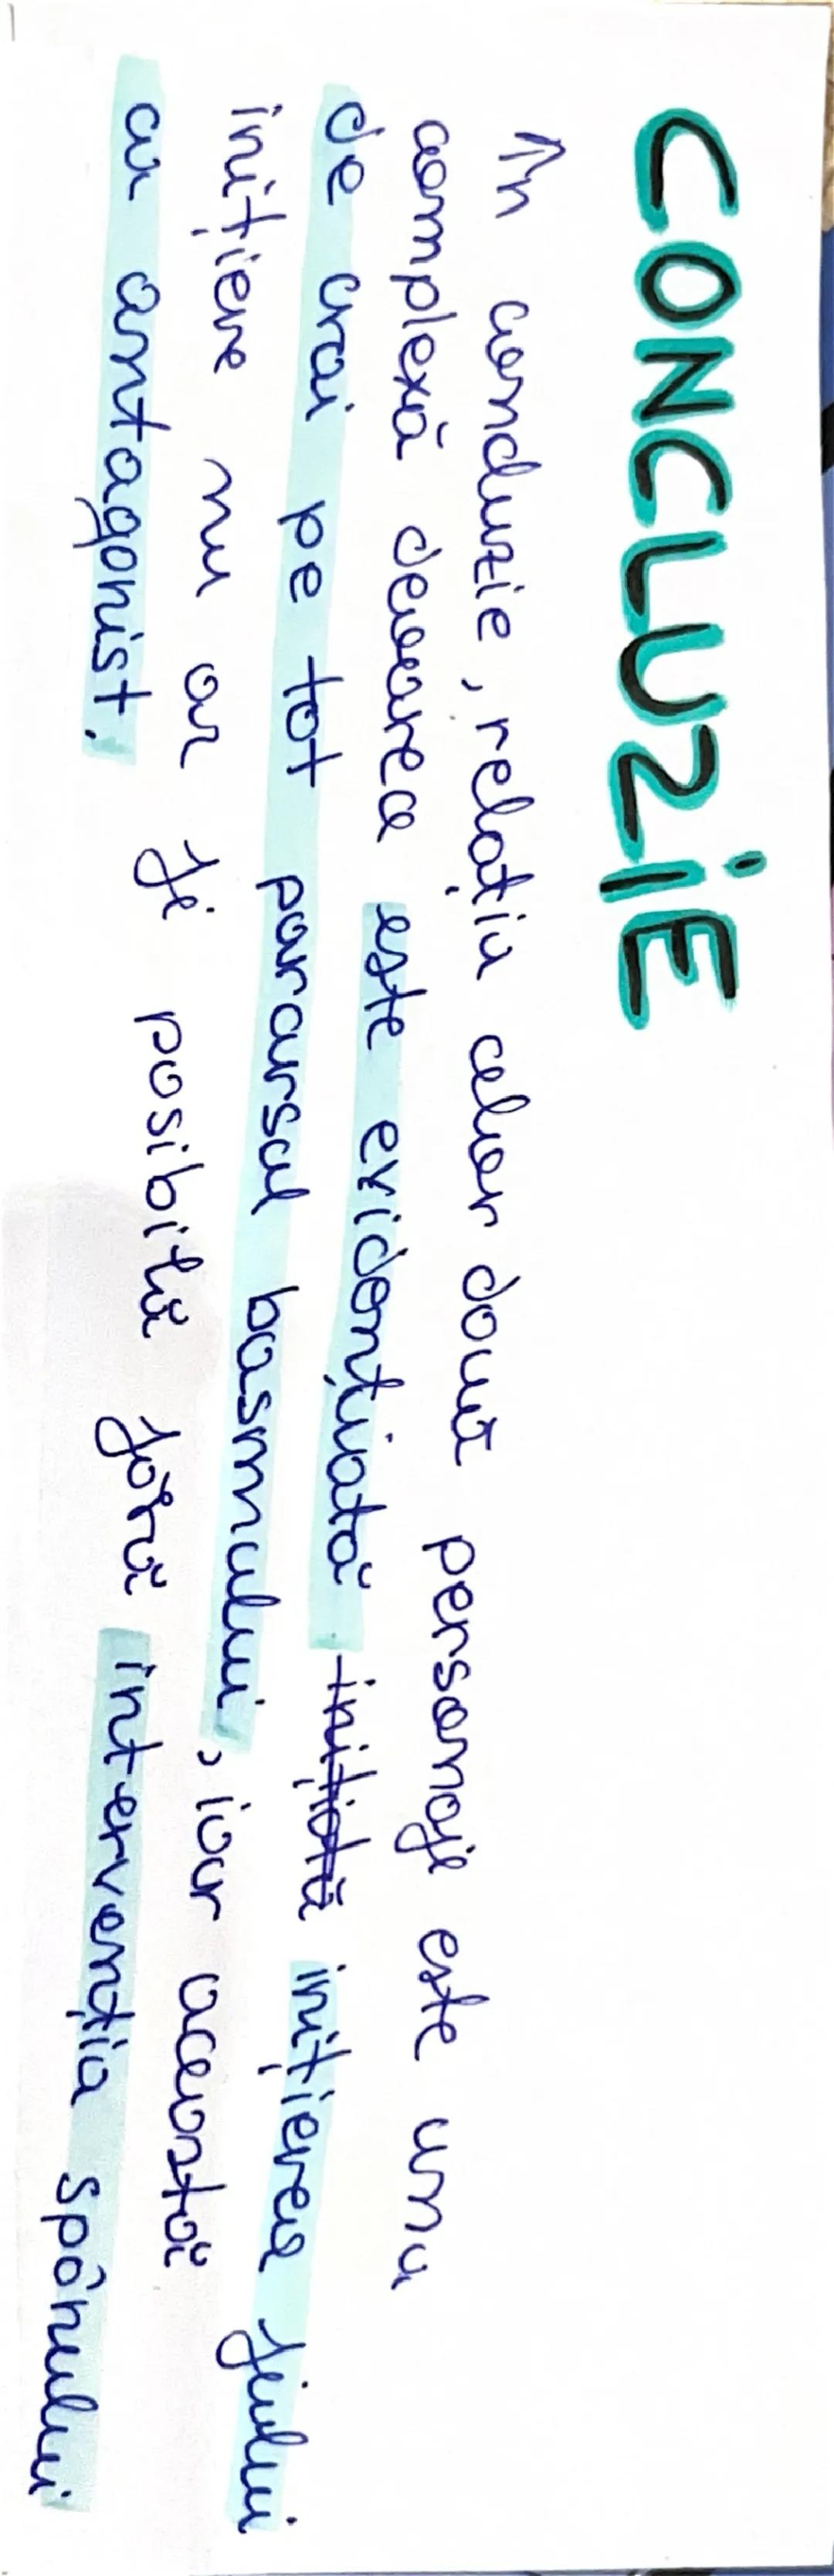 CONCLUZiE
În concluzie, relația celor două personaje este una
complexă deoarece este evidențiată inițiată inițierea fiului
de crai pe tot parcursul basmului, iar această
inițiere nu ar fi posibilă fără intervenția spânului
ca antagonist.